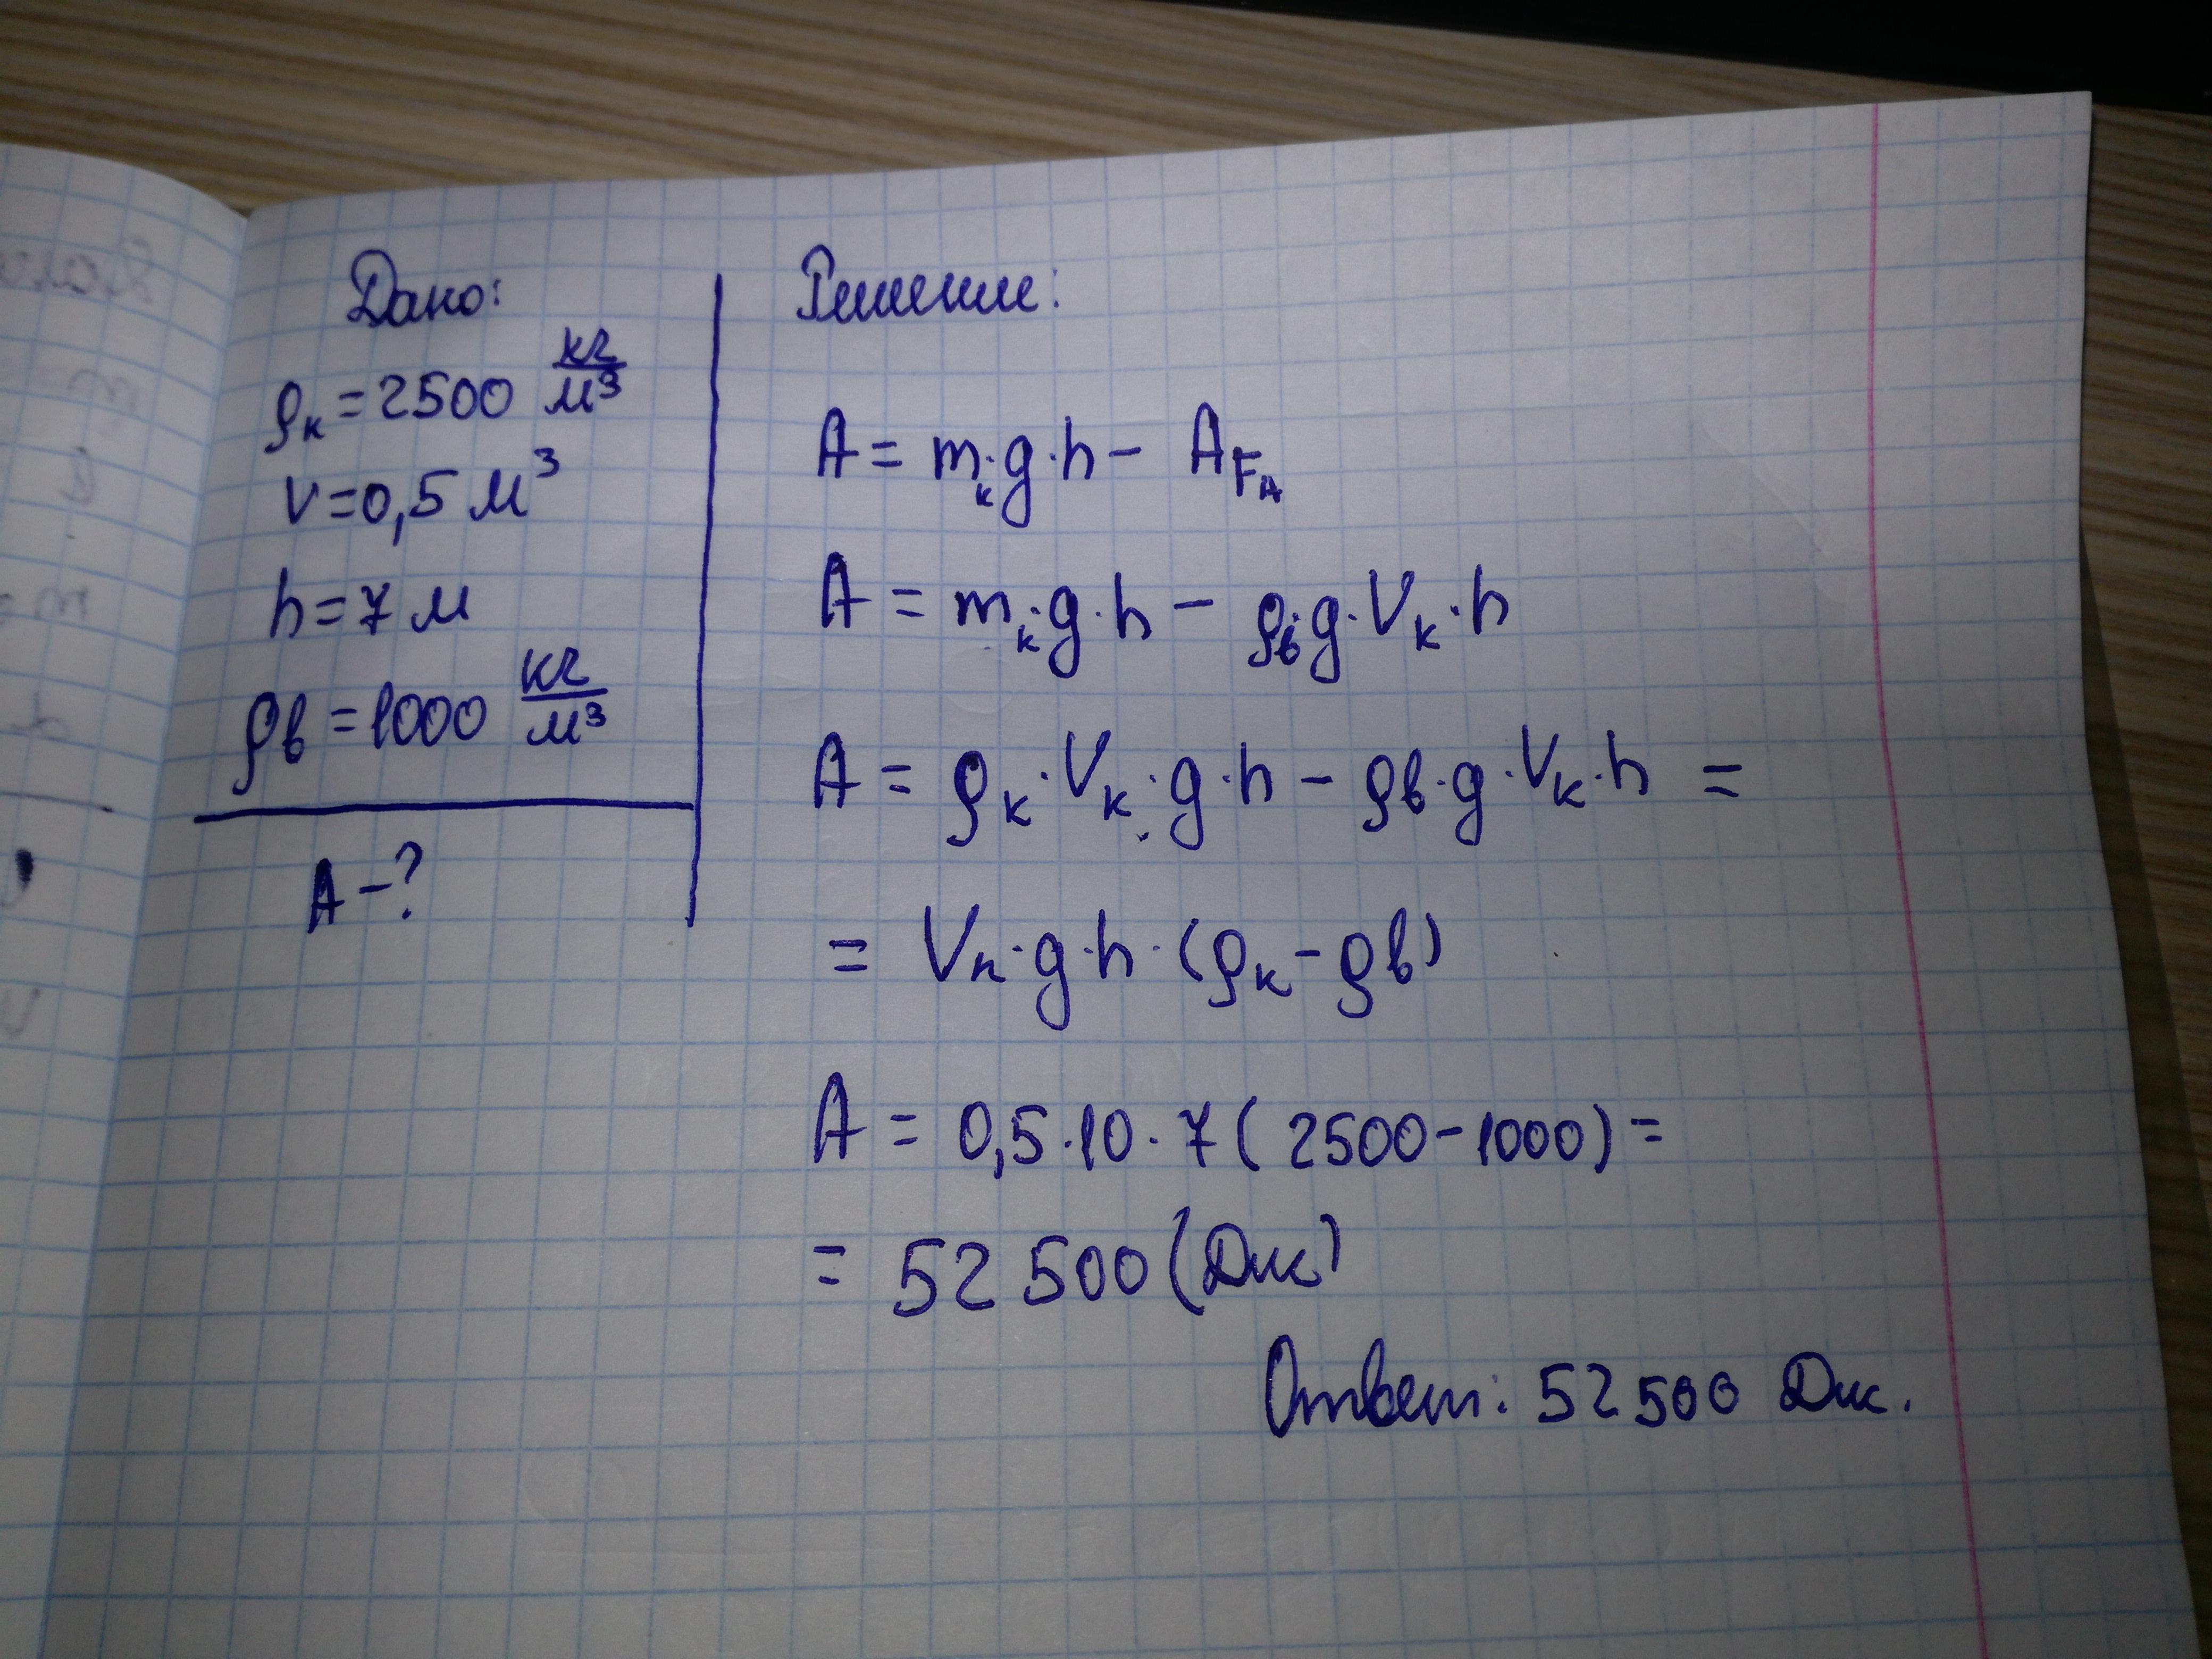 Дано:
ρк = 2500 кг/м³
V = 0,5 м³
h = 7 м
ρв = 1000 кг/м³
A - ?
Решение:
A = mк·g·h - A_FA
A = mк·g·h - ρв·g·Vк·h
A = ρк·Vк·g·h - ρв·g·Vк·h =
= Vк·g·h·(ρк - ρв)
A = 0,5·10·7(2500-1000) =
= 52 500 (Дж)
Ответ: 52 500 Дж.